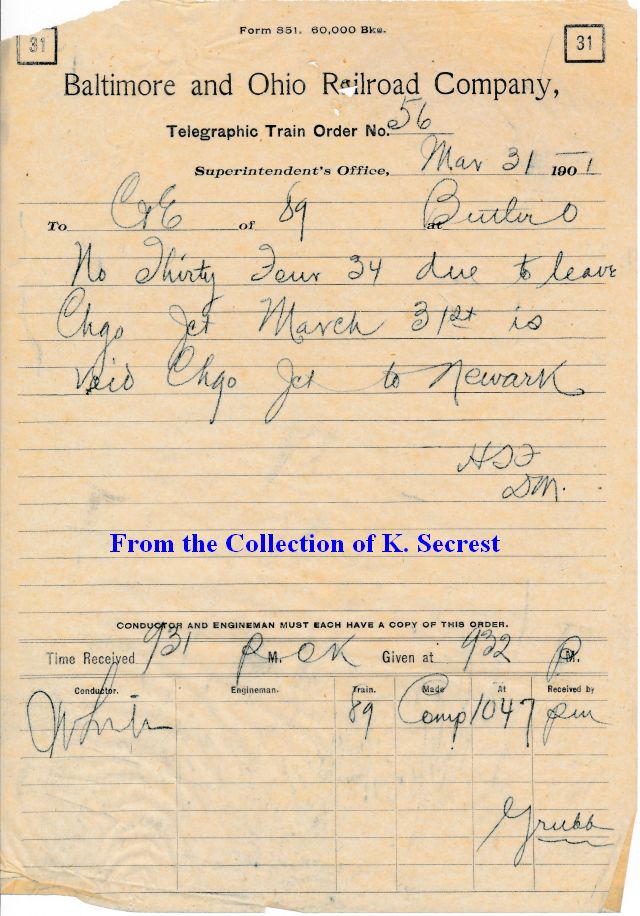 Form 851. 60,000 Bks.
31 31
Baltimore and Ohio Railroad Company,
Telegraphic Train Order No. 56
Superintendent's Office, Mar 31 1901
To C&E of 89 at Butler O
No Thirty Four 34 due to leave
Chgo Jct March 31st is
void Chgo Jct to Newark
HTF
DM.
From the Collection of K. Secrest
CONDUCTOR AND ENGINEMAN MUST EACH HAVE A COPY OF THIS ORDER.
Time Received 931 P M. OK Given at 932 P M.
Conductor. Engineman. Train. Made At Received by
White 89 Comp 1047 pm
Grubb